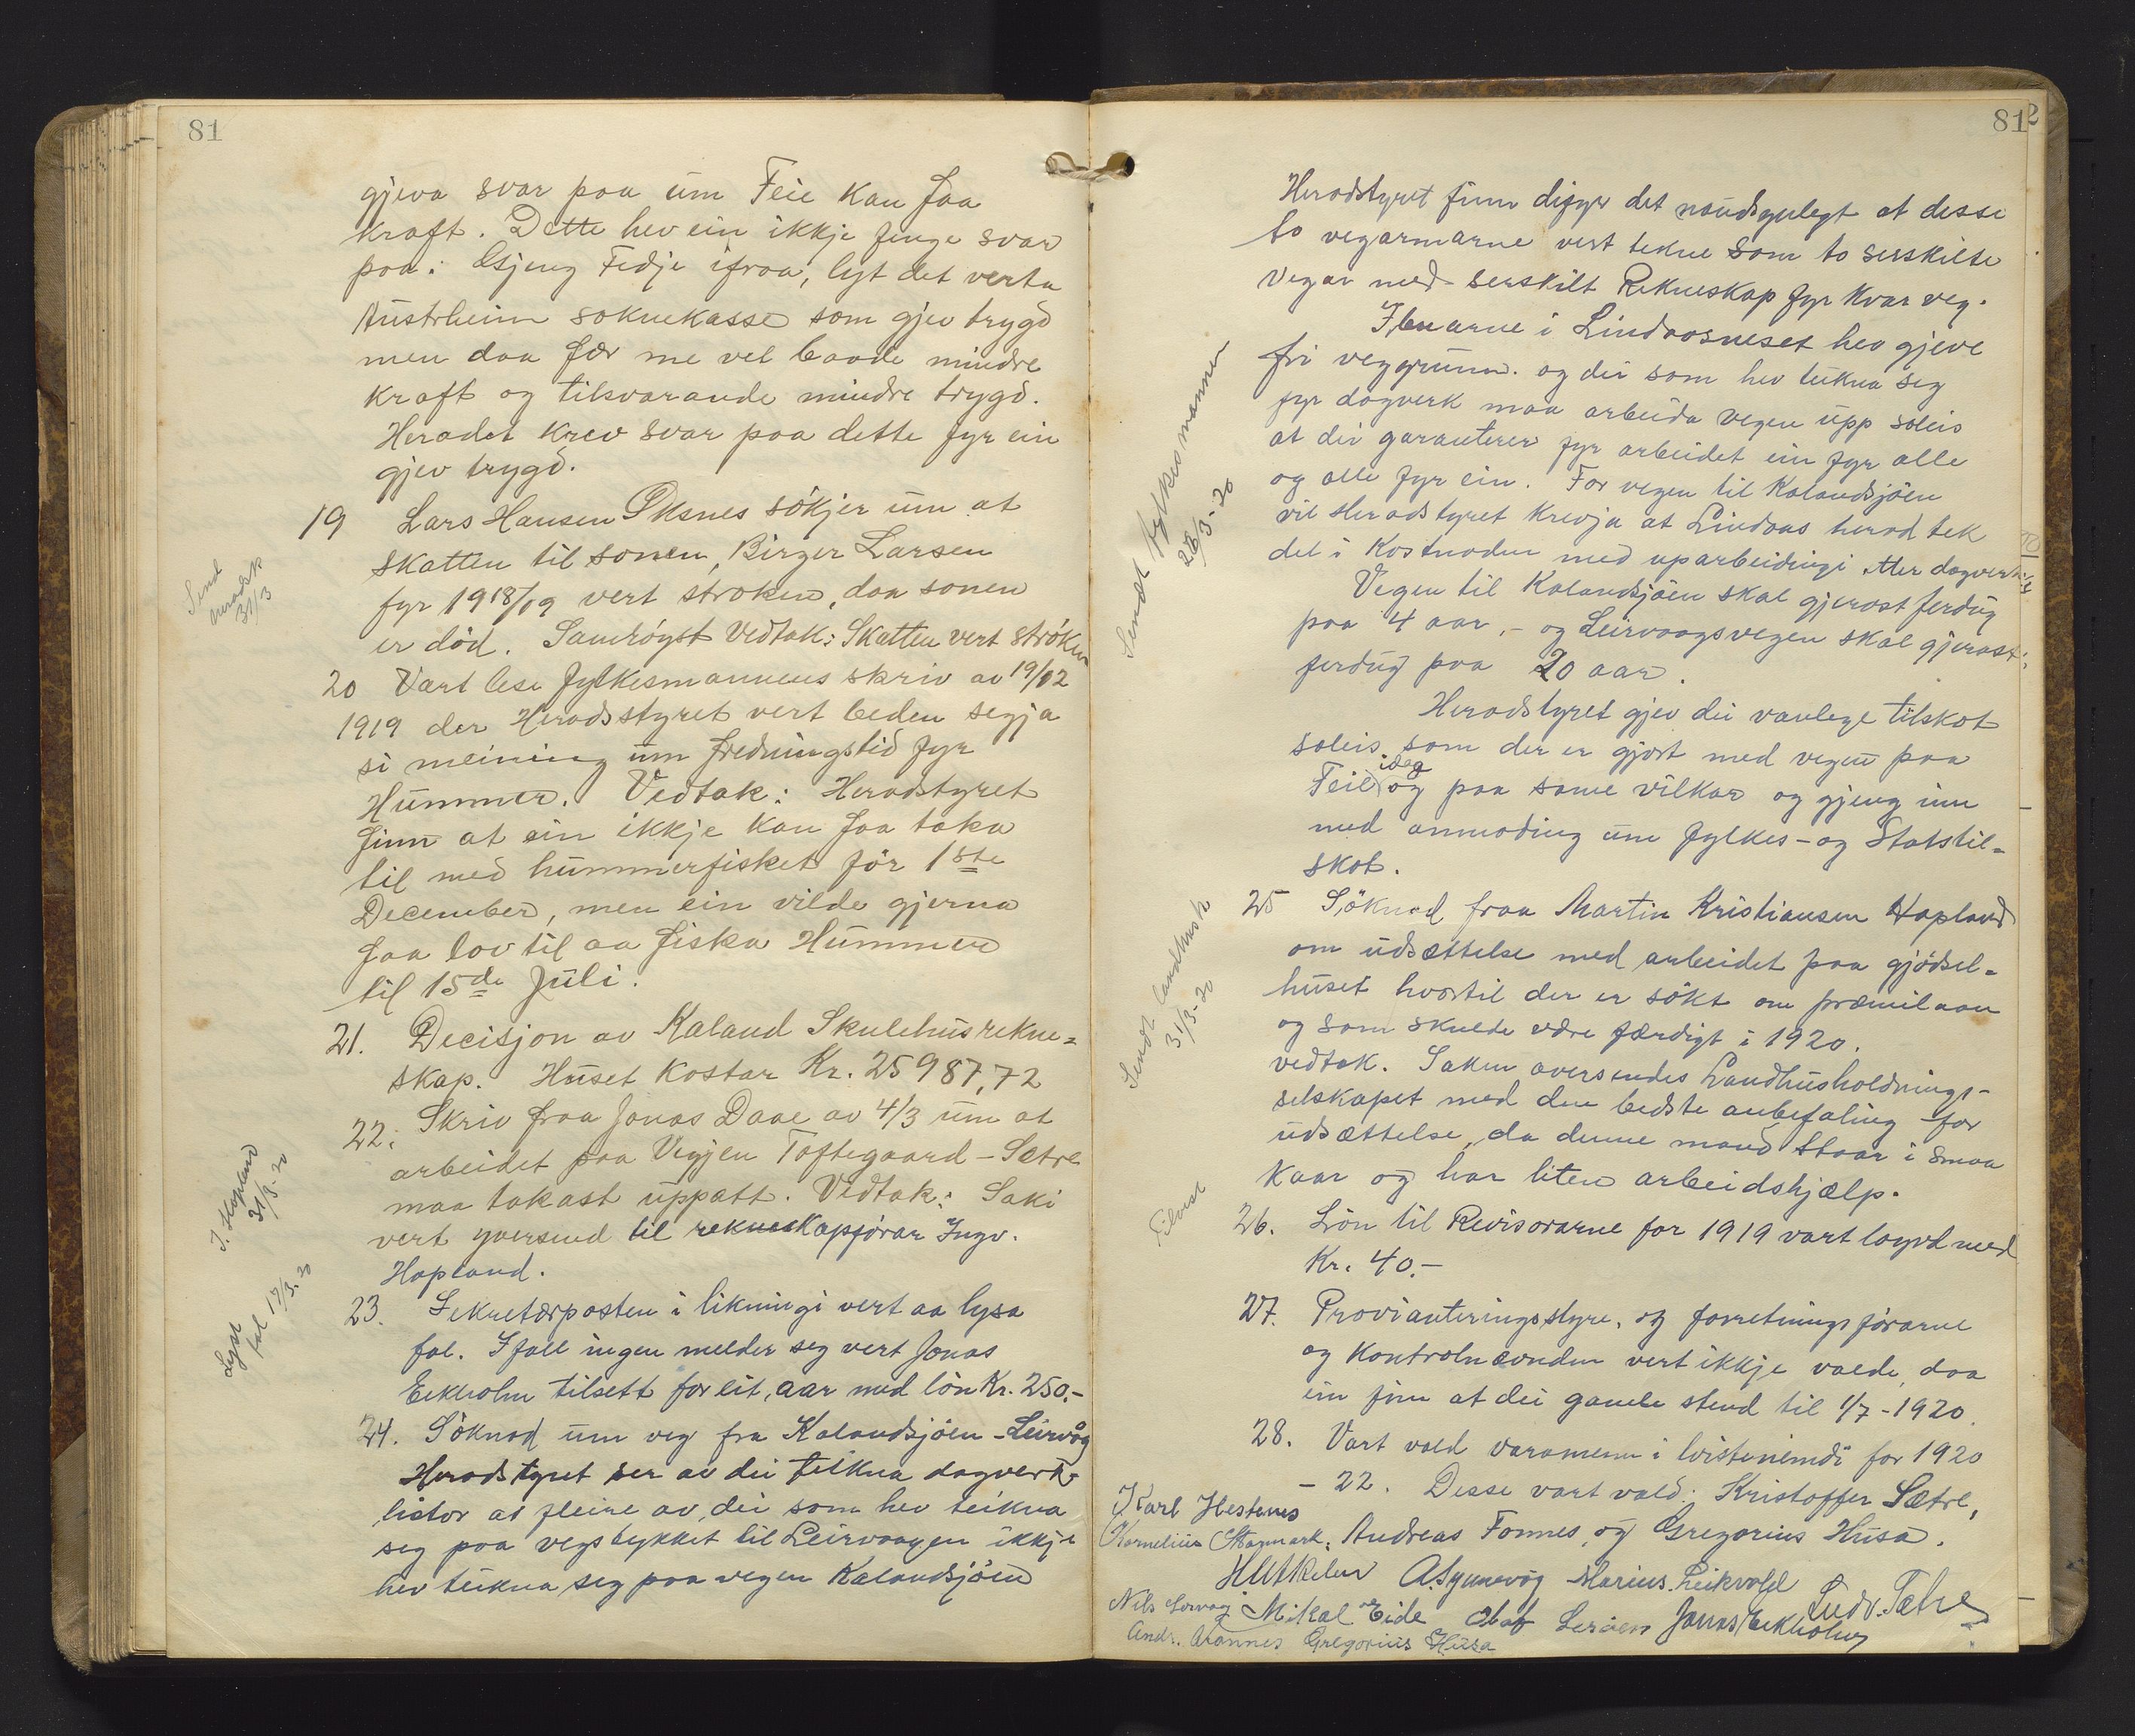 81
gjeva svar paa um Feie kan faa
kraft. Dette hev ein ikkje fenge svar
paa. Gjeng Fedje ifraa, lyt det verta
Austrheim soknekasse som gjev trygd
men daa fær me vel baade mindre
kraft og tilsvarande mindre trygd.
Heradet krev svar paa dette fyr ein
gjev trygd.
19 Lars Hansen Øksnes sökjer um at
skatten til sonen, Birger Larsen
fyr 1918/19 vert stroken, daa sonen
er död. Samröyst Vedtak: Skatten vert ströken
Send
31/3
20 Vart lese fylkesmannens skriv av 19/12
1919 der Heradsstyret vert beden segja
si meining um fredningstid fyr
Hummer. Vedtak: Heradstyret
finn at ein ikkje kan faa taka
til med hummerfisket för 1ste
December, men ein vilde gjerna
faa lov til aa fiska Hummer
til 15de Juli.
21. Decisjon av Kaland Skulehusrekne=
skap. Huset kostar Kr. 25987,72
22. Skriv fraa Jonas Daae av 4/3 um at
arbeidet paa Vegjen Toftegaard - Sætre
maa takast uppatt. Vedtak: Saki
vert yversend til rekneskapförar Ingv.
Hopland.
I. Hopland
31/3-20
23. Sekretærposten i likningi vert aa lysa
fal. Ifall ingen melder seg vert Jonas
Eikholm tilsett for eit aar med lön Kr. 250.-
Lyst
fal 17/3-20
24. Söknad um veg fra Kalandsjöen - Leirvåg
Heradstyret ser av dei teikna dagverk=
listor at fleire av dei som hev teikna
seg paa vegstykket til Leirvaagen ikkje
hev teikna seg paa vegen Kalandsjöen
812
Heradstyret finn difyr det naudsynlegt at desse
to vegarmarne vert tekne som to serskilte
vegar med serskilt Rekneskap fyr kvar veg.
Ibuarne i Lindaasneset hev gjeve
fri veggrunn. og dei som hev teikna seg
fyr dagverk maa arbeida vegen upp soleis
at dei garanterer fyr arbeidet ein fyr alle
og alle fyr ein. For vegen til Kalandsjöen
vil Heradstyret krevja at Lindaas herad tek
del i kostnaden med uparbeidingi etter dagverk
Vegen til Kalandsjöen skal gjerast ferdug
paa 4 aar, - og Leirvaagsvegen skal gjerast
ferdug paa 20 aar.
Sendt fylkesmannen
26/3-20
Heradstyret gjev dei vanlege tilskot
soleis som der er gjort med vegen paa
Feie idag og paa same vilkar og gjeng inn
med anmoding um Fylkes- og Statstil=
skot.
25 Söknad fraa Martin Kristiansen Hopland
om udsættelse med arbeidet paa gjödsel=
huset hvortil der er sökt om præmilaan
og som skulde være færdigt i 1920.
vedtak. Saken oversendes Landhusholdnings-
selskapet med den bedste anbefaling for
udsættelse, da denne mand staar i smaa
kaar og har liten arbeidshjælp.
Sendt landhush
31/3-20
26. Lön til Revisorarne for 1919 vart løyvd med
Kr. 40.-
27. Provianteringsstyre, og forretningsförarne
og kontrolnævnden vert ikkje valde, daa
ein finn at dei gamle stend til 1/7-1920.
28. Vart vald varamenn i for 1920
- 22. Desse vart vald: Kristoffer Sætre,
Andreas Fonnes, og Gregorius Husa.
Karl Hestenes
Kornelius
A. Synnevåg Marius Leikvold Ludv. Sætre
Nils Mikal Eide Olaf Jonas Eikholm
Andr. Gregorius Husa